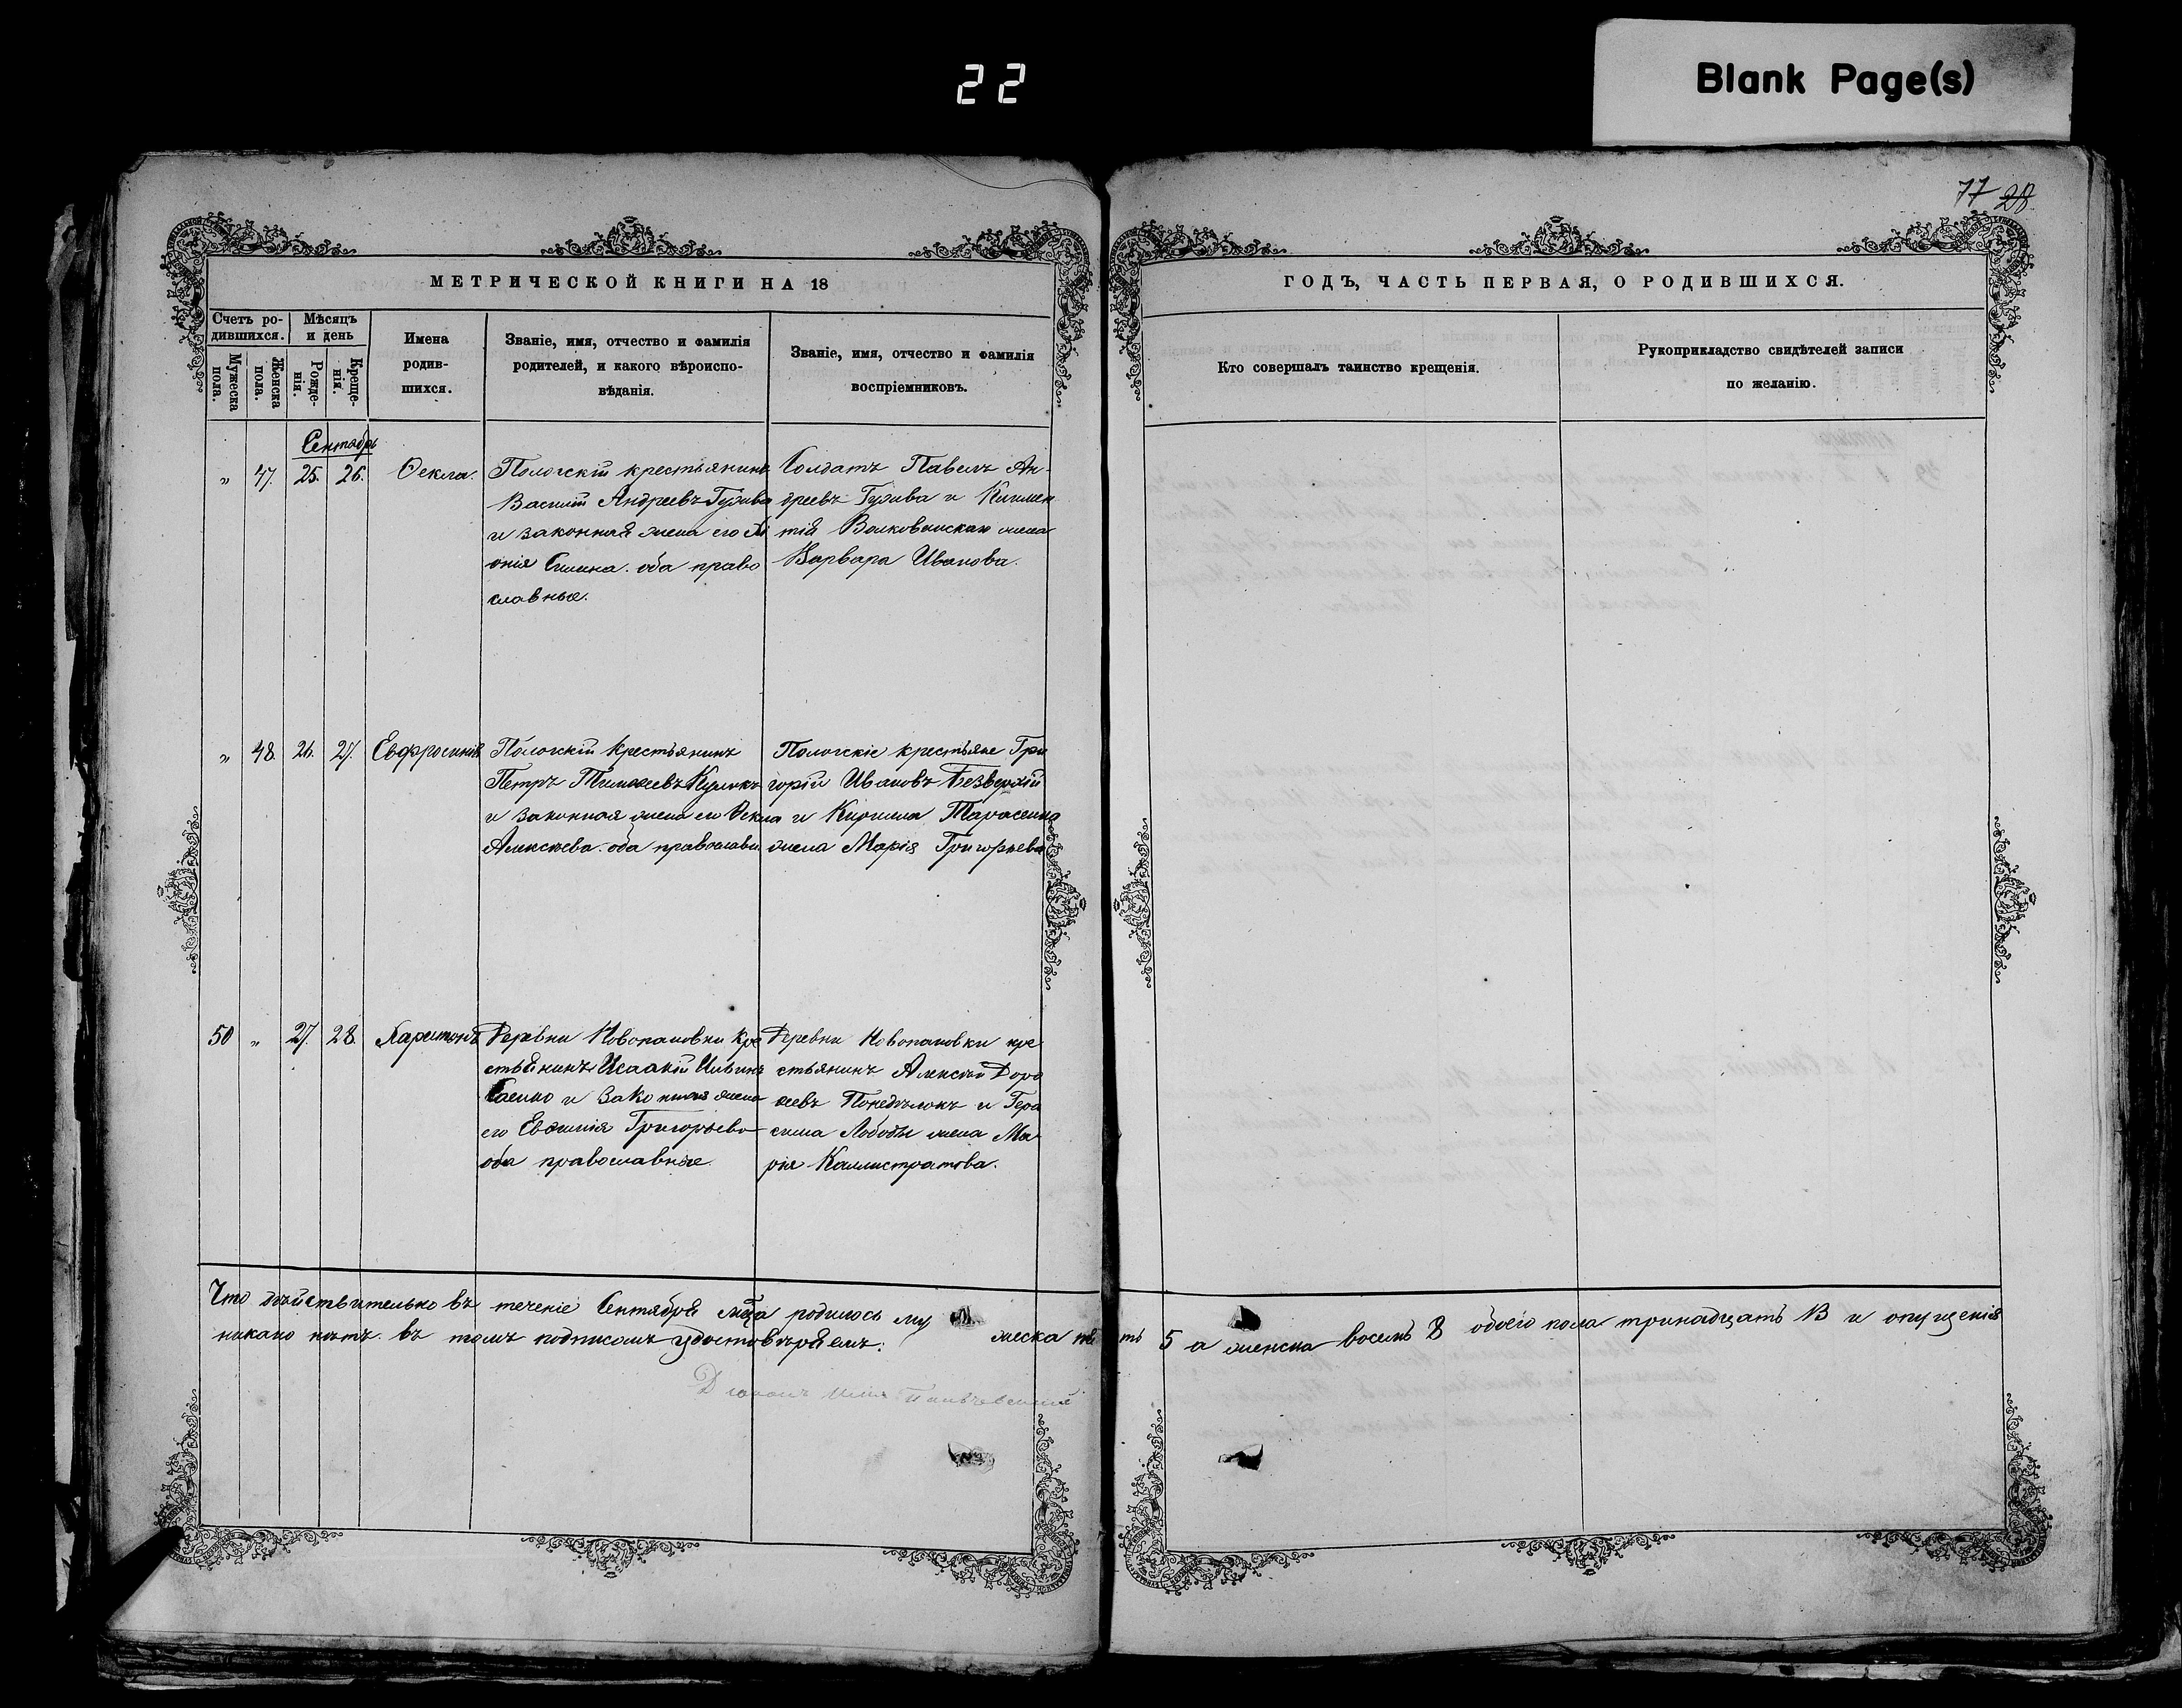 22
Blank Page(s)
77 28
МЕТРИЧЕСКОЙ КНИГИ НА 18
Счетъ ро-
дившихся.
Мѣсяцъ
и день
Мужеска
пола.
Женска
пола.
Рожде-
нія.
Креще-
нія.
Имена
родив-
шихся.
Званіе, имя, отчество и фамилія
родителей, и какого вѣроиспо-
вѣданія.
Званіе, имя, отчество и фамилія
воспріемниковъ.
ГОДЪ, ЧАСТЬ ПЕРВАЯ, О РОДИВШИХСЯ.
Кто совершалъ таинство крещенія.
Рукоприкладство свидѣтелей записи
по желанію.
Сентябрь
" 47. 25. 26. Ѳекла.
Пологскій крестьянинъ
Василій Андреевъ Гузива
и законная жена его
онія Силина. оба право
славные.
Солдатъ Павелъ Ан-
дреевъ Гузива и Климен
тія жена
Варвара Иванова.
" 48. 26. 27. Евфросинія
Пологскій крестьянинъ
Петръ Тимоѳеевъ Куликъ
и законная жена его Ѳекла
Алексѣева. оба православн
Пологскіе крестьяне Гри
горій Ивановъ Безверхій
и Кирилла Тарасенка
жена Марія Григорьева
50 " 27. 28. Харитонъ
Деревни Новопавловки кре
стьянинъ Исаакій Ильинъ
и законная жена
его Евфимія Григорьева
оба православные.
Деревни Новопавловки кре
стьянинъ Алексѣй Доро
ѳеевъ Понедѣлокъ и Гера
сима Лободы жена Ма
рія Каллистратова.
Что дѣйствительно въ теченіе Сентября мца родилось му жеска пять 5 а женска восемь 8 обоего пола тринадцать 13 и опущенія
никако нѣтъ. въ томъ подписомъ удостовѣряемъ: